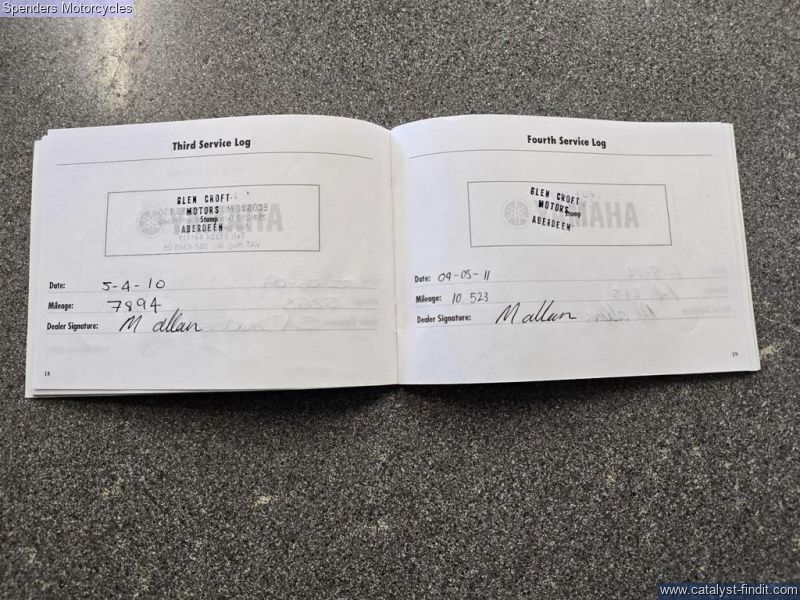 Spenders Motorcycles
Third Service Log
GLEN CROFT
MOTORS
Stamp
ABERDEEN
Date: 5-4-10
Mileage: 7894
Dealer Signature: M allan
18
Fourth Service Log
GLEN CROFT
MOTORS
Stamp
ABERDEEN
YAMAHA
Date: 09-05-11
Mileage: 10 523
Dealer Signature: M allan
19
www.catalyst-findit.com